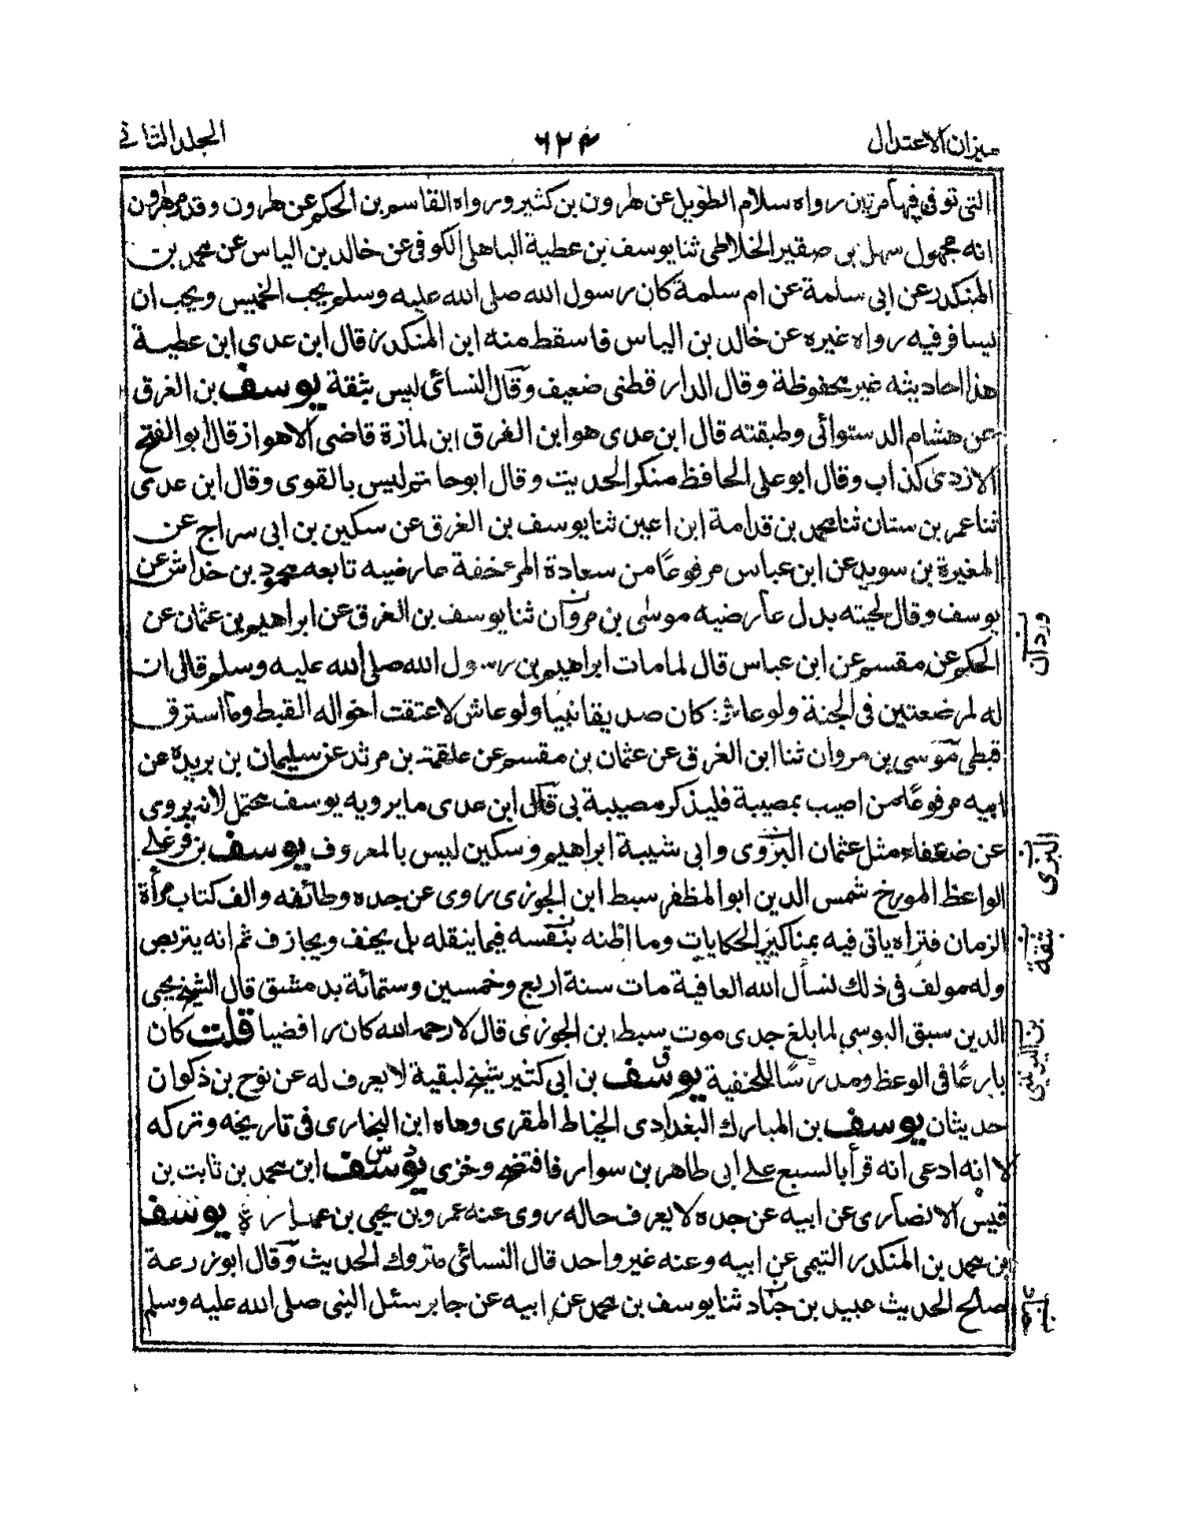 ميزان الاعتدال
٦٢٤
المجلد الثاني
التي توفي فيها مرتين رواه سلام الطويل عن هارون بن كثير ورواه القاسم بن الحكم عن هارون وقد مر هارون
انه مجهول سهل بن صقير الخلاطي ثنا يوسف بن عطية الباهلي الكوفي عن خالد بن الياس عن محمد بن
المنكدر عن ابي سلمة عن ام سلمة كان رسول الله صلى الله عليه وسلم يحب الخميس ويحب ان
يسافر فيه رواه غيره عن خالد بن الياس فاسقط منه ابن المنكدر قال ابن عدي ابن عطية
هذا احاديثه غير محفوظة وقال الدارقطني ضعيف وقال النسائي ليس بثقة يوسف بن الغرق
عن هشام الدستوائي وطبقته قال ابن عدي هو ابن الغرق ابن لمازة قاضي الاهواز قال ابو الفتح
الازدي كذاب وقال ابو علي الحافظ منكر الحديث وقال ابو حاتم ليس بالقوي وقال ابن عدي
ثنا عمر بن سنان ثنا محمد بن قدامة ابن اعين ثنا يوسف بن الغرق عن سكين بن ابي سراج عن
المغيرة بن سويد عن ابن عباس مرفوعًا من سعادة المرء خفة عارضيه تابعه محمود بن خداش عن
يوسف وقال لحيته بدل عارضيه موسى بن مروان ثنا يوسف بن الغرق عن ابراهيم بن عثمان عن
الحكم عن مقسم عن ابن عباس قال لما مات ابراهيم بن رسول الله صلى الله عليه وسلم قال ان
له لمرضعتين في الجنة ولو عاش كان صديقا نبيا ولو عاش لاعتقت اخواله القبط وما استرق
قبطي موسى بن مروان ثنا ابن الغرق عن عثمان بن مقسم عن علقمة بن مرثد عن سليمان بن بريدة عن
ابيه مرفوعًا من اصيب بمصيبة فليذكر مصيبة بي قال ابن عدي ما يرويه يوسف محتمل لانه يروي
عن ضعفاء مثل عثمان البزوي وابي شيبة ابراهيم وسكين ليس بالمعروف يوسف بن فرغلي
الواعظ المورخ شمس الدين ابو المظفر سبط ابن الجوزي روى عن جده وطائفه والف كتاب مرأة
الزمان فتراه ياتي فيه بمناكير الحكايات وما اظنه بثقسه فيما ينقله بل يجنف ويجازف ثم انه يتربص
وله مولف في ذلك نسأل الله العافية مات سنة اربع وخمسين وستمائة بدمشق قال الشيخ محيي
الدين سبق البوسي لما بلغ جدي موت سبط بن الجوزي قال لا رحمه الله كان رافضيا قلت كان
بارعًا في الوعظ ومدرسًا للحنفية يوسف بن ابي كثير شيخ لبقية لا يعرف له عن نوح بن ذكوان
حديثان يوسف بن المبارك البغدادي الخياط المقري وهاه ابن النجاري في تاريخه وتركه
لا انه ادعى انه قرأ بالسبع على ابي طاهر بن سوار فافتضح وخزى يوسف ابن محمد بن ثابت بن
قيس الانصاري عن ابيه عن جده لا يعرف حاله روى عنه عمرو بن يحيى بن عمارة يوسف
بن محمد بن المنكدر التيمي عن ابيه وعنه غير واحد قال النسائي متروك الحديث وقال ابو زرعة
صالح الحديث عبيد بن جناد ثنا يوسف بن محمد عن ابيه عن جابر سئل النبي صلى الله عليه وسلم
وردان
البزي
بثقة